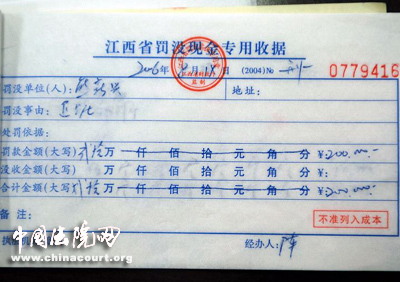 江西省罚没现金专用收据
2006年8月15日 (2004) № 0779416
罚没单位(人): 地址:
罚没事由:
处罚依据:
罚款金额(大写) 贰拾万 仟 佰 拾 元 角 分 ¥:200,000.-
没收金额(大写) 万 仟 佰 拾 元 角 分 ¥:
合计金额(大写) 贰拾万 仟 佰 拾 元 角 分 ¥:200,000.-
备注: 不准列入成本
中国法院网
www.chinacourt.org
经办人: